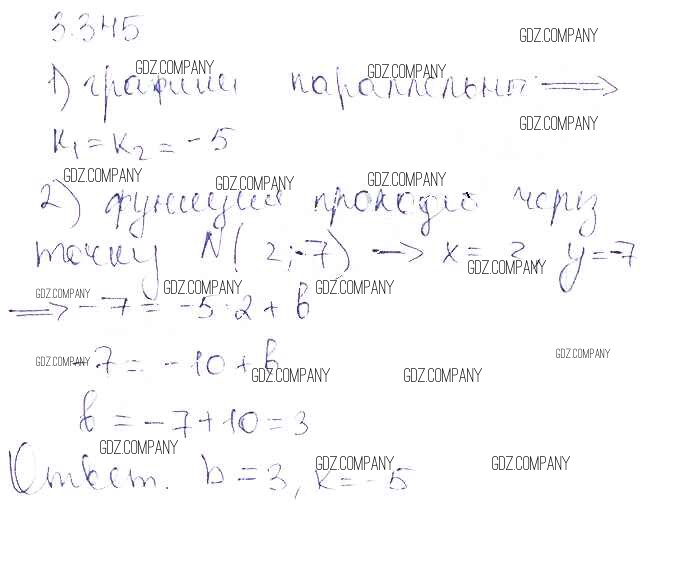 3.345
GDZ.COMPANY
GDZ.COMPANY GDZ.COMPANY
1) графики параллельны ⟹
GDZ.COMPANY
k₁ = k₂ = -5
GDZ.COMPANY GDZ.COMPANY GDZ.COMPANY
2) функция проходит через
точку N(2;-7) → x = 2, y = -7
GDZ.COMPANY
GDZ.COMPANY GDZ.COMPANY GDZ.COMPANY
⟹ -7 = -5·2 + b
GDZ.COMPANY GDZ.COMPANY
-7 = -10 + b
GDZ.COMPANY GDZ.COMPANY
b = -7 + 10 = 3
GDZ.COMPANY
GDZ.COMPANY GDZ.COMPANY
Ответ. b = 3, k = -5